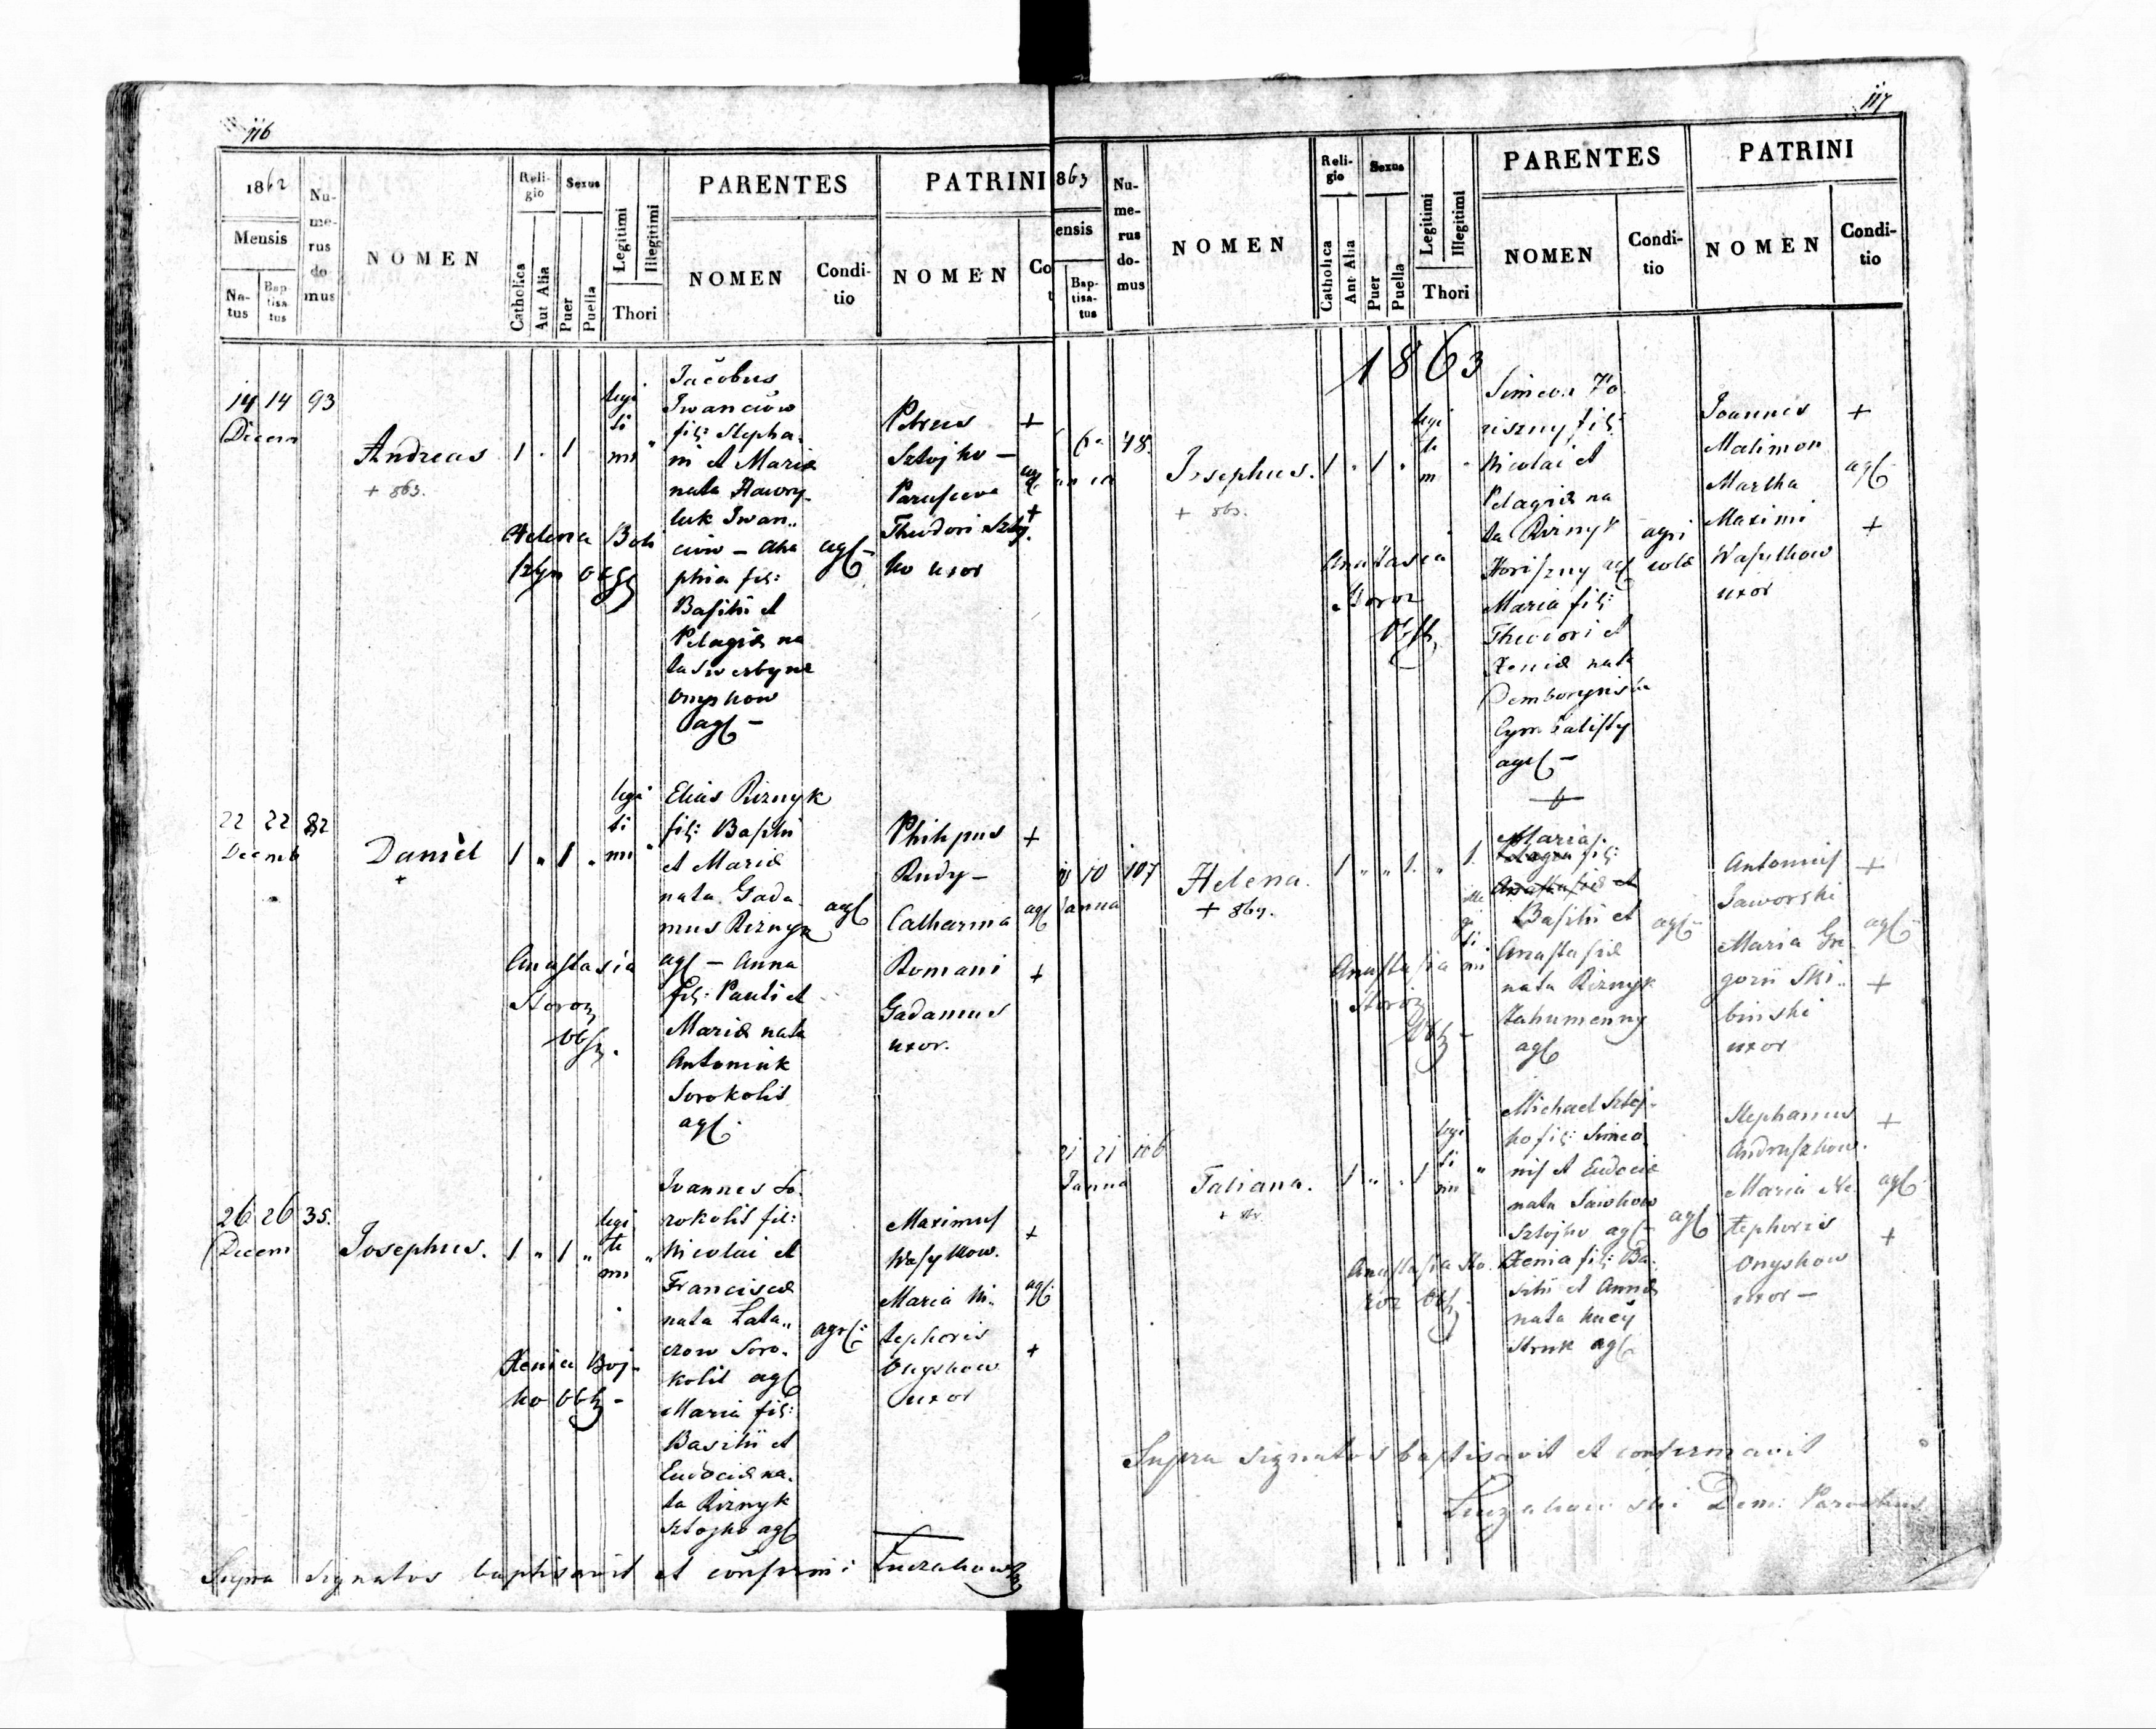 116
1862
Mensis
Na-
tus
Bap-
tisa-
tus
Nu-
me-
rus
do
mus
NOMEN
Reli-
gio
Catholica
Aut Alia
Sexus
Puer
Puella
Legitimi
Illegitimi
Thori
PARENTES
NOMEN
Condi-
tio
PATRINI
NOMEN
Co
t
14 14 93
Decem
Andreas
+ 863.
1 . 1
legi
ti
mi
Jacobus
Iwanciów
fil: Stepha-
ni et Mariæ
nata Hawry-
luk Iwan..
ciów — Aha
phia fil:
Basilii et
Pelagiæ na
ta Swerbyne
Onyskow
agl —
agl —
Petrus +
Sztojko —
agl
+
Theodori Sztoj.
ko uxor
Helena
22 22 82
Decemb
Daniel
+
1 „ 1 „
legi
ti
mi
Elias Riznyk
fil: Basilii
et Mariæ
nata Gada-
mus Riznyk
agl — Anna
fil: Pauli et
Mariæ nata
Antoniuk
Sorokolit
agl.
agl
Philipus +
Rudy —
Catharina agl
Romani +
Gadamus
uxor.
Anastasia
Storoz
Obst.
26 26 35.
Decem
Josephus.
1 „ 1 „
legi
ti
mi
Ioannes So.
rokolit fil:
Nicolai et
Franciscæ
nata Lata„
czow Soro.
kolit agl
Maria fil:
Basilii et
Eudociæ na.
ta Riznyk
Sztojko agl
agl:
Maximus
+
Wasylkow.
Maria Ni. agl
kephoris
+
Onyskow
uxor
Xenia Boj-
ko Obst —
Supra signatos baptisavit et confirm:
117
863
ensis
Bap-
tisa-
tus
Nu-
me-
rus
do-
mus
NOMEN
Reli-
gio
Catholica
Ant Alia
Sexus
Puer
Puella
Legitimi
Illegitimi
Thori
PARENTES
NOMEN
Condi-
tio
PATRINI
NOMEN
Condi-
tio
1863
48.
Josephus.
+ 863.
1 . 1 .
legi
ti
m
Simeon Ho
riszny fil:
Nicolai et
Pelagiæ na
ta Riznyk
Horiszny agl
Maria fil:
Theodori et
Xeniæ nata
agl —
agri
colæ
Joannes +
Malimon
Martha agl
Maximi
+
Wasylkow
uxor
Anastasia
Storoz
Obst.
10 107
Janua
Helena.
+ 869.
1 „ „ 1. „ 1.
ille
gi
ti
mi
Maria
fil:
Basilii et
Anastasiæ
nata Riznyk
Tahumenny
agl
agl —
Antonius +
Jaworski
Maria Gre. agl
gorii Ski..
+
binski
uxor
Anastasia
Storoz
Obst —
21 21 106
Janua
Tatiana.
1 „ . 1
legi
ti
mi
Michael Sztoj-
ko fil: Simeo.
nis et Eudociæ
nata Sawkow
Sztojko agl —
Xenia fil: Ba-
silii et Annæ
nata Kucy
Struk agl.
agl
Stephanus +
Andruszkow.
Maria Ni. agl
kephoris
+
Onyskow
uxor —
Anastasia Sto.
roz Obst.
Supra signatos baptisavit et confirmavit
Parochus